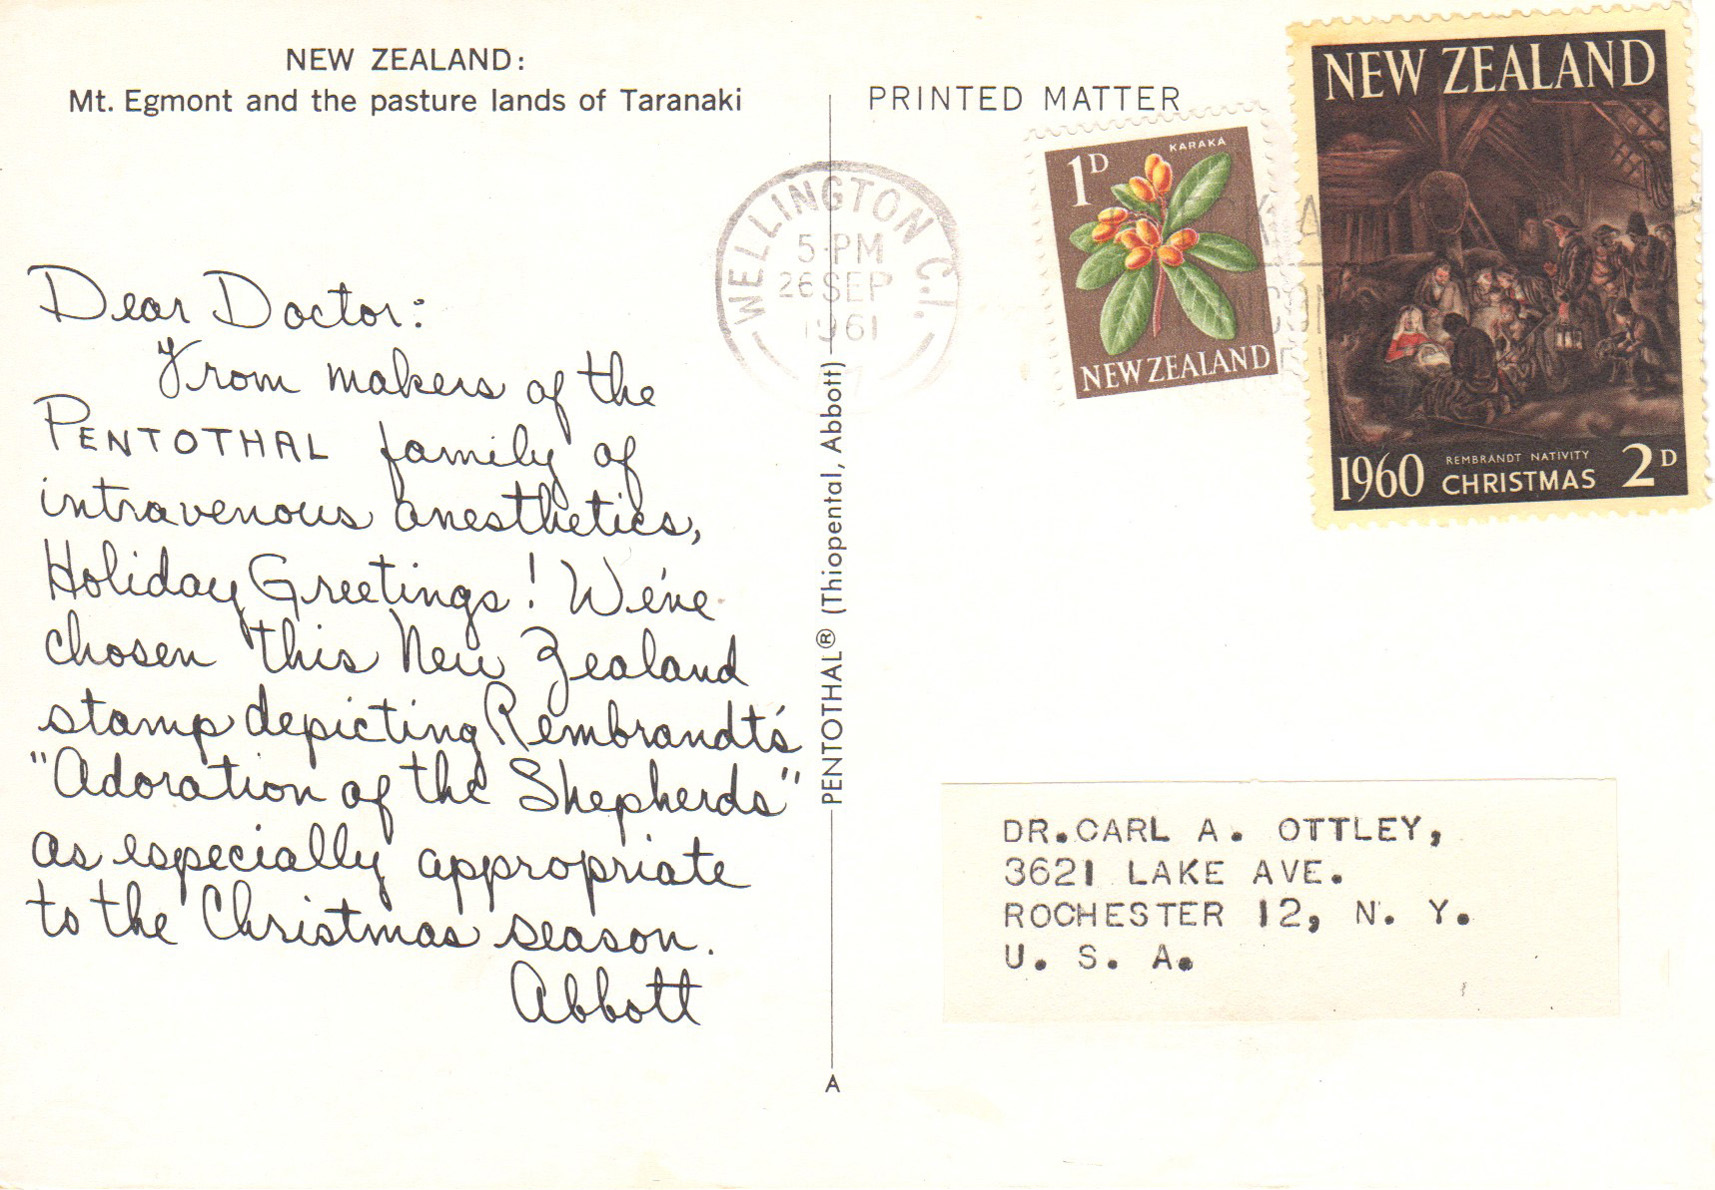 NEW ZEALAND:
Mt. Egmont and the pasture lands of Taranaki
Dear Doctor:
From makers of the
PENTOTHAL family of
intravenous anesthetics,
Holiday Greetings! We've
chosen this New Zealand
stamp depicting Rembrandt's
"Adoration of the Shepherds"
as especially appropriate
to the Christmas season.
Abbott
PENTOTHAL® (Thiopental, Abbott)
A
PRINTED MATTER
WELLINGTON C.1.
5·PM
26 SEP
1961
1D
KARAKA
NEW ZEALAND
NEW ZEALAND
1960
REMBRANDT NATIVITY
CHRISTMAS
2D
DR.CARL A. OTTLEY,
3621 LAKE AVE.
ROCHESTER 12, N. Y.
U. S. A.